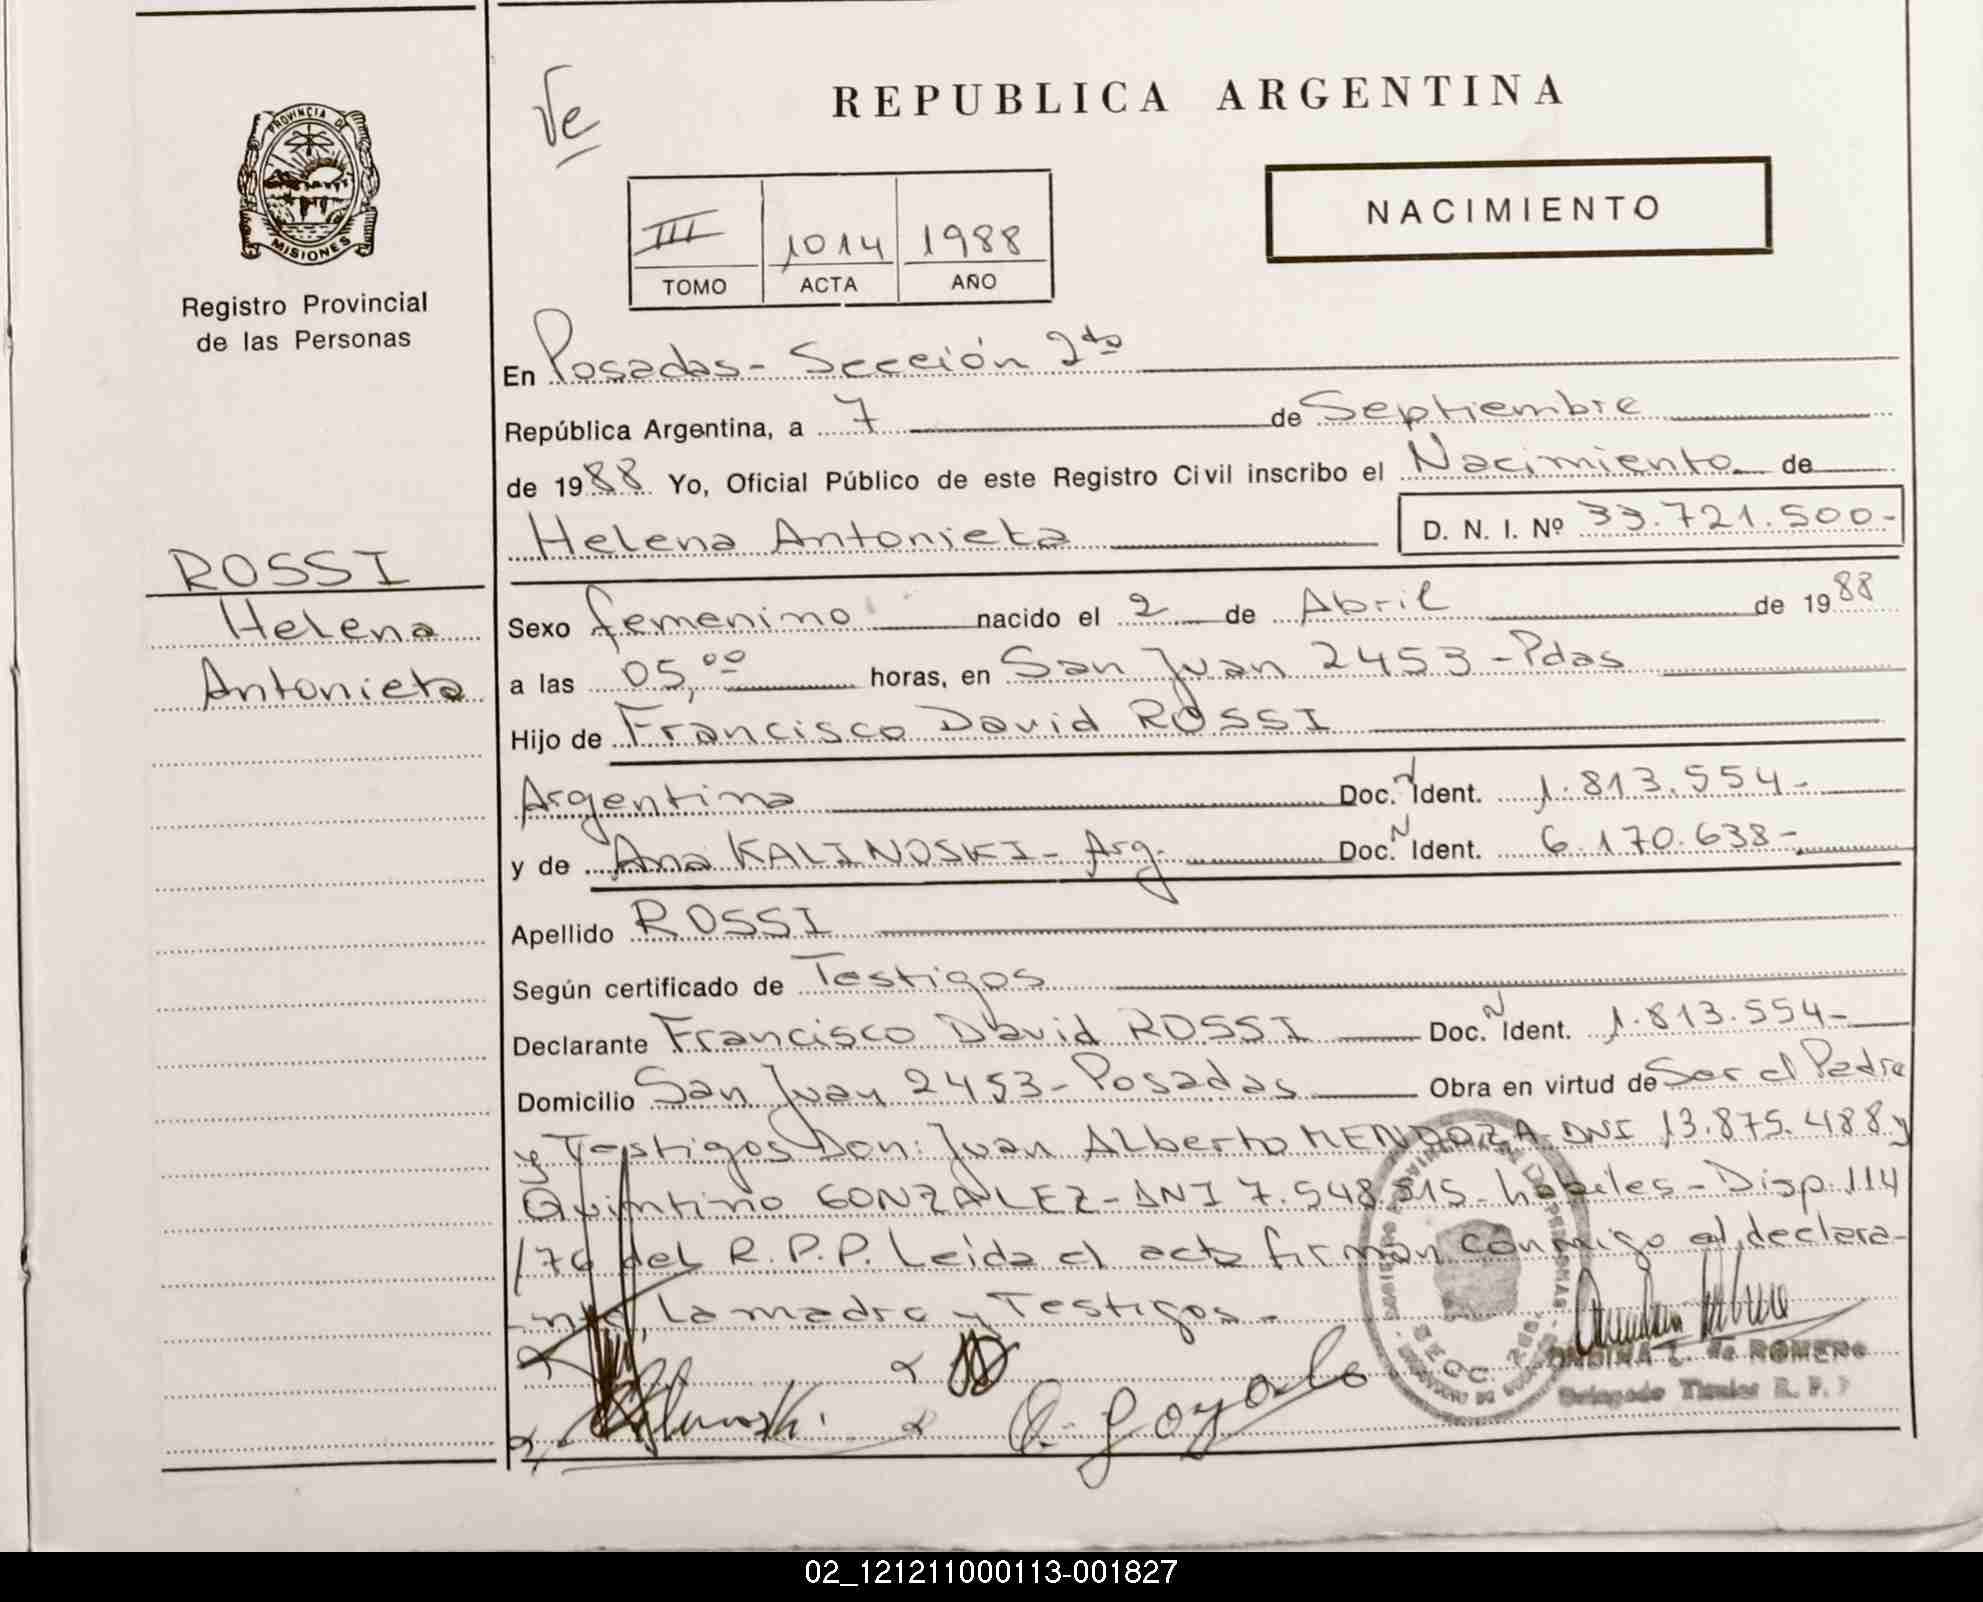 PROVINCIA DE
MISIONES
Registro Provincial
de las Personas
ROSSI
Helena
Antonieta
Ve
REPUBLICA ARGENTINA
NACIMIENTO
III 1014 1988
TOMO ACTA AÑO
En Posadas - Sección 2da
República Argentina, a 7 de Septiembre
de 1988 Yo, Oficial Público de este Registro Civil inscribo el Nacimiento de
Helena Antonieta D. N. I. Nº 33.721.500-
Sexo femenino nacido el 2 de Abril de 1988
a las 05,00 horas, en San Juan 2453 - Pdas
Hijo de Francisco David ROSSI
Argentina Doc. N Ident. 1.813.554-
y de Ana KALINOSKI - Arg. Doc. N Ident. 6.170.638-
Apellido ROSSI
Según certificado de Testigos
Declarante Francisco David ROSSI Doc. N Ident. 1.813.554-
Domicilio San Juan 2453 - Posadas Obra en virtud de Ser el Padre
y Testigos Don: Juan Alberto MENDOZA - DNI 13.875.488 y
Quintino GONZALEZ - DNI 7.548.515 - hábiles - Disp. 114
/76 del R.P.P. Leida el acta firman conmigo el declara-
nte, la madre y Testigos -
de ROMERO
Delegado Titular R. P. P
02_121211000113-001827